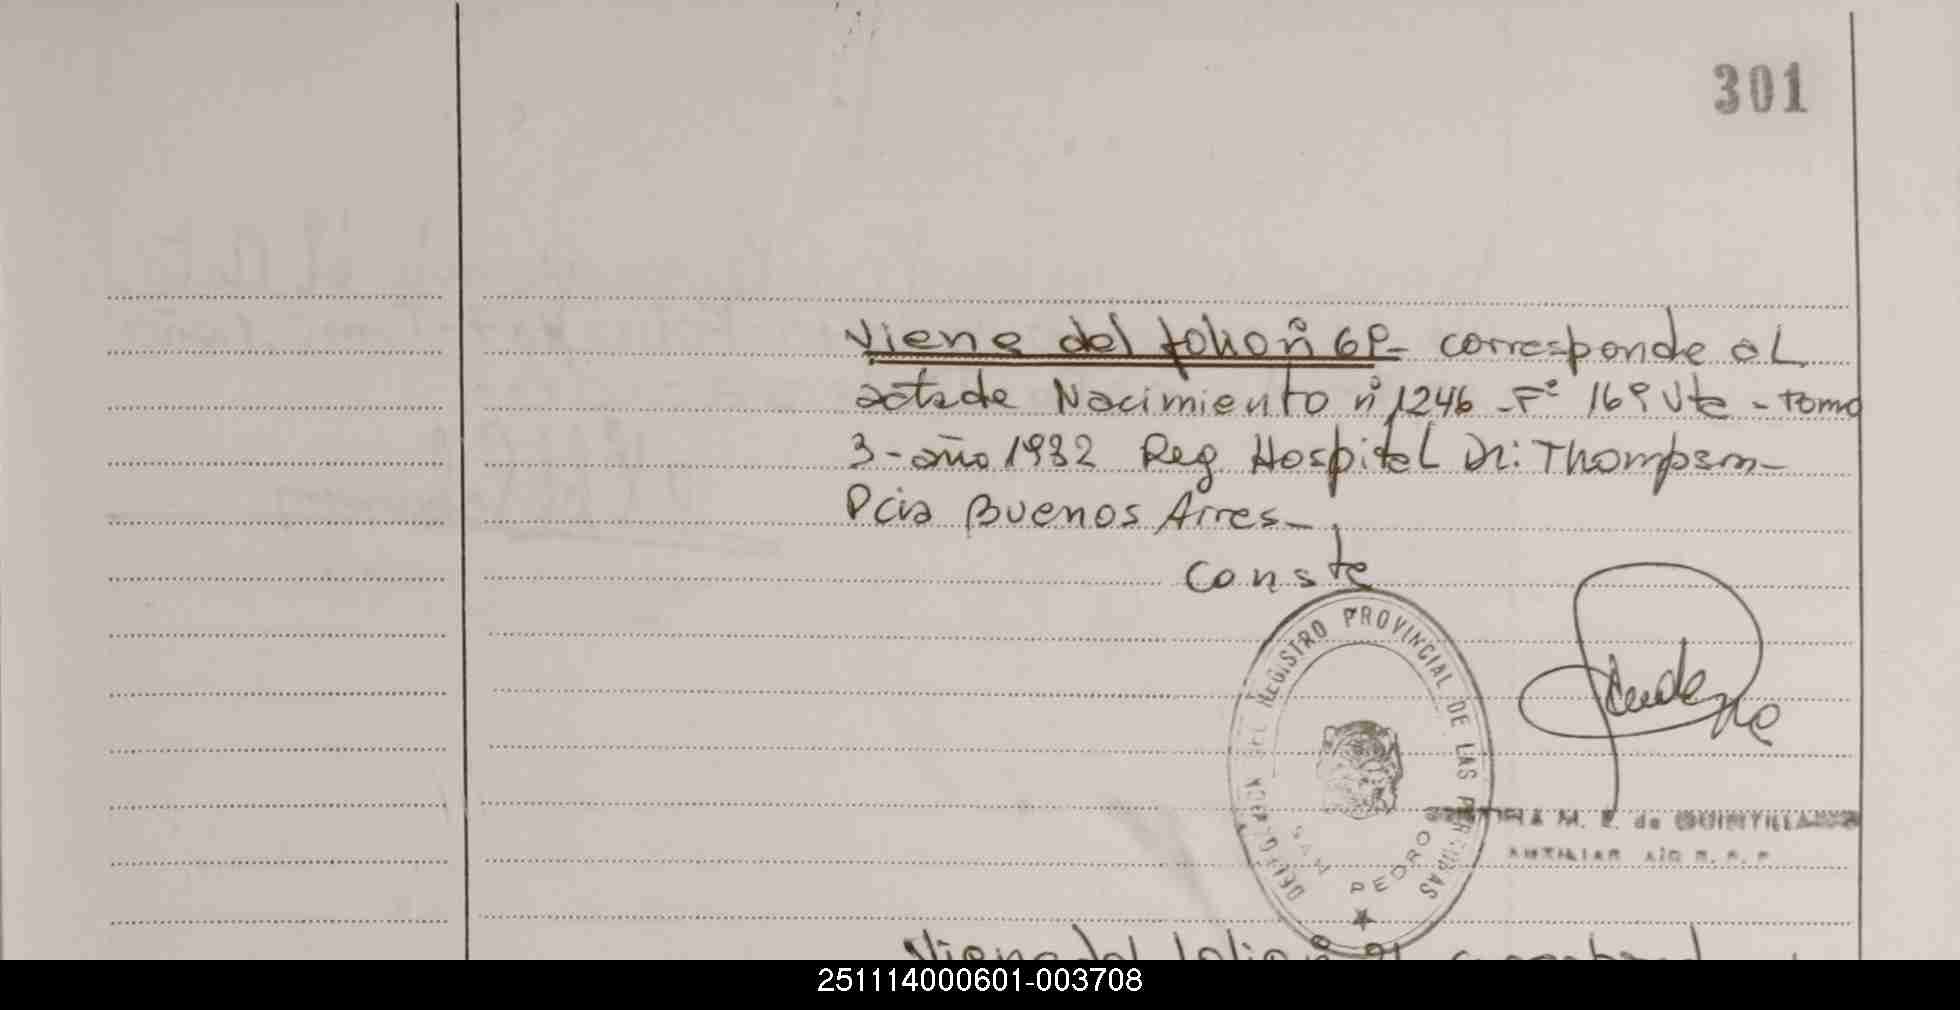 301
Viene del folio nº 69- corresponde al
acta de Nacimiento nº 1246 - Fº 169 Vte - tomo
3- año 1932 Reg. Hospital Dr: Thompson-
Pcia Buenos Aires-
Conste
DELEGACION DEL REGISTRO PROVINCIAL DE LAS PERSONAS
SAN PEDRO
M. E. de QUINTILLAN
AUXILIAR
Viene del folio nº 91 corresponde
251114000601-003708